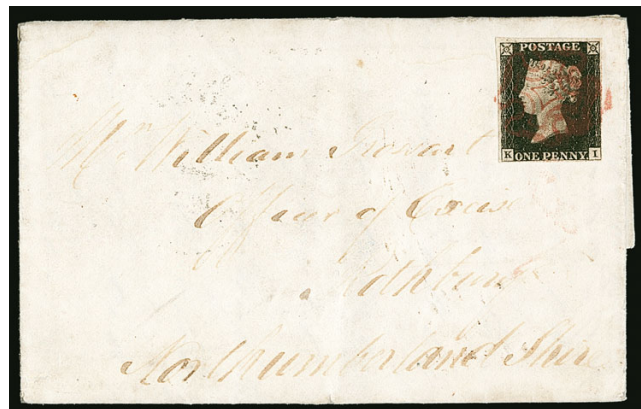 POSTAGE
K ONE PENNY I
Mr William
Officer of Excise
Rothbury
Northumberland Shire